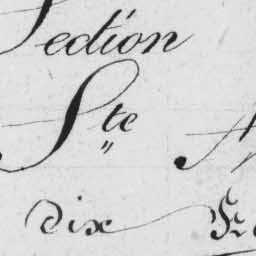 Section
Ste
Dix